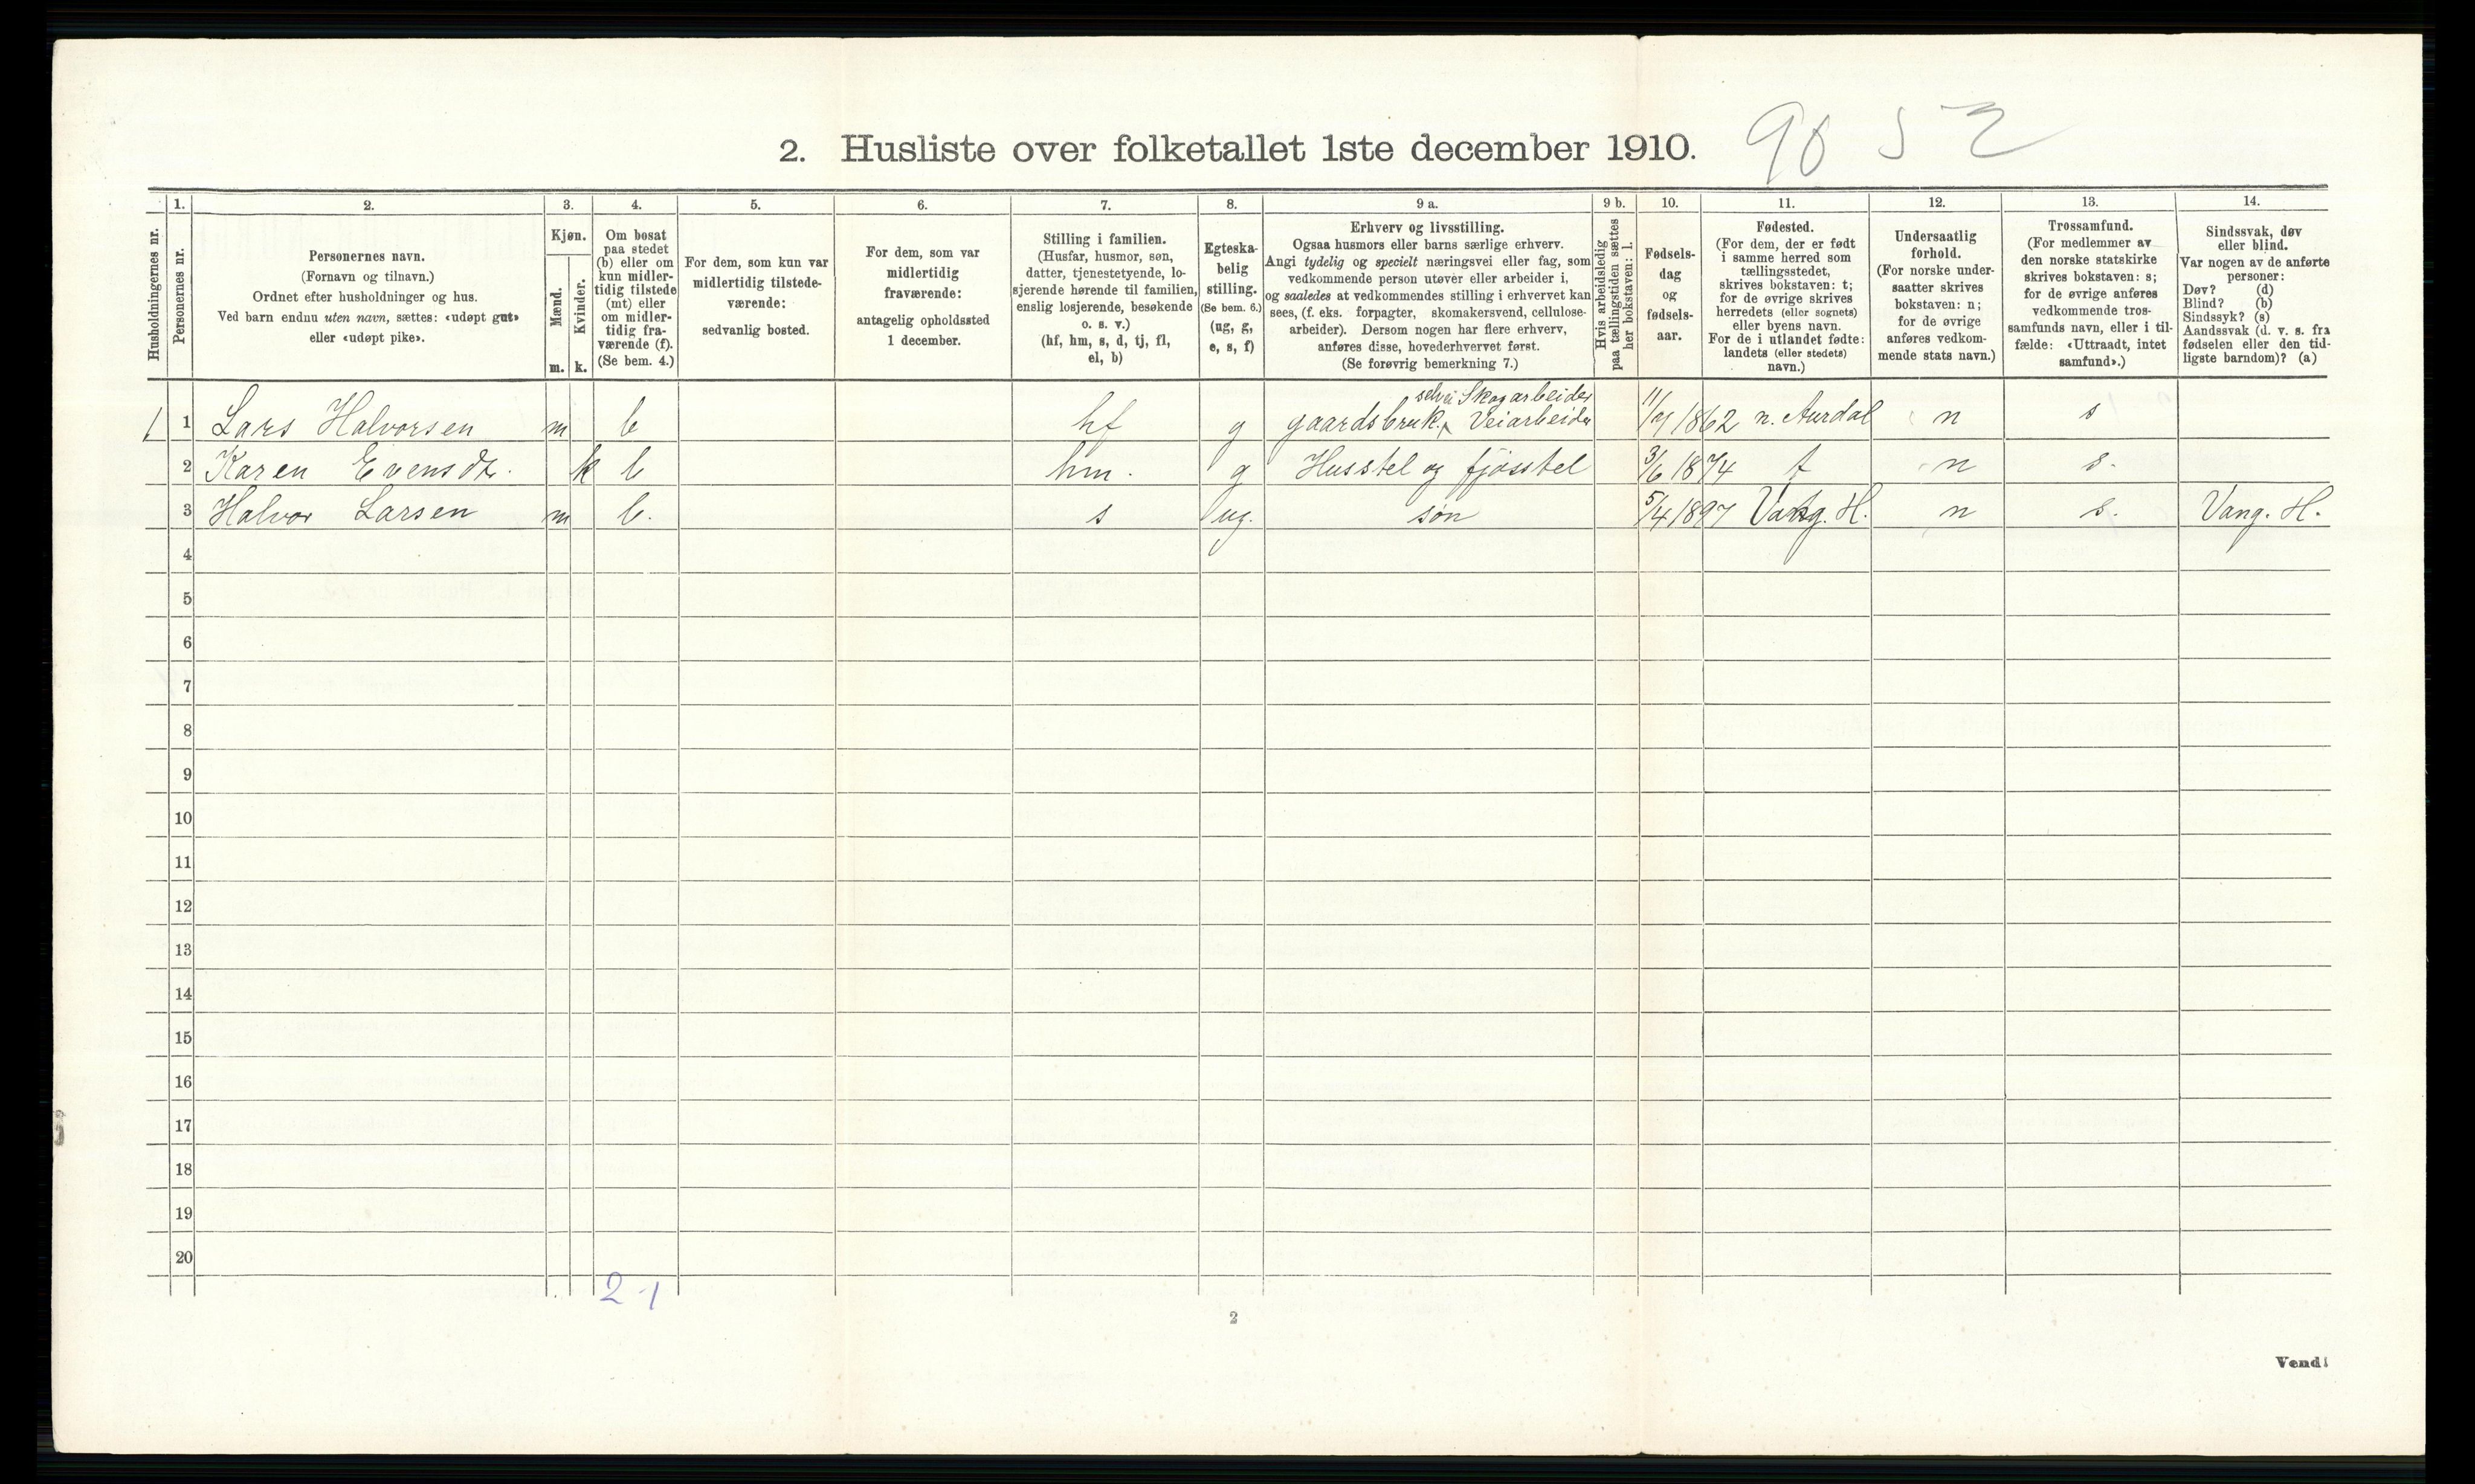 90 5 2
2. Husliste over folketallet 1ste december 1910.
Husholdningernes nr.
1.
Personernes nr.
2.
Personernes navn.
(Fornavn og tilnavn.)
Ordnet efter husholdninger og hus.
Ved barn endnu uten navn, sættes: «udøpt gut»
eller «udøpt pike».
3.
Kjøn.
Mænd.
Kvinder.
m. k.
4.
Om bosat
paa stedet
(b) eller om
kun midler-
tidig tilstede
(mt) eller
om midler-
tidig fra-
værende (f).
(Se bem. 4.)
5.
For dem, som kun var
midlertidig tilstede-
værende:
sedvanlig bosted.
6.
For dem, som var
midlertidig
fraværende:
antagelig opholdssted
1 december.
7.
Stilling i familien.
(Husfar, husmor, søn,
datter, tjenestetyende, lo-
sjerende hørende til familien,
enslig losjerende, besøkende
o. s. v.)
(hf, hm, s, d, tj, fl,
el, b)
8.
Egteska-
belig
stilling.
(Se bem. 6.)
(ug, g,
e, s, f)
9 a.
Erhverv og livsstilling.
Ogsaa husmors eller barns særlige erhverv.
Angi tydelig og specielt næringsvei eller fag, som
vedkommende person utøver eller arbeider i,
og saaledes at vedkommendes stilling i erhvervet kan
sees, (f. eks. forpagter, skomakersvend, cellulose-
arbeider). Dersom nogen har flere erhverv,
anføres disse, hovederhvervet først.
(Se forøvrig bemerkning 7.)
9 b.
Hvis arbeidsledig
paa tællingstiden sættes
her bokstaven: l.
10.
Fødsels-
dag
og
fødsels-
aar.
11.
Fødested.
(For dem, der er født
i samme herred som
tællingsstedet,
skrives bokstaven: t;
for de øvrige skrives
herredets (eller sognets)
eller byens navn.
For de i utlandet fødte:
landets (eller stedets)
navn.)
12.
Undersaatlig
forhold.
(For norske under-
saatter skrives
bokstaven: n;
for de øvrige
anføres vedkom-
mende stats navn.)
13.
Trossamfund.
(For medlemmer av
den norske statskirke
skrives bokstaven: s;
for de øvrige anføres
vedkommende tros-
samfunds navn, eller i til-
fælde: «Uttraadt, intet
samfund».)
14.
Sindssvak, døv
eller blind.
Var nogen av de anførte
personer:
Døv? (d)
Blind? (b)
Sindssyk? (s)
Aandssvak (d. v. s. fra
fødselen eller den tid-
ligste barndom)? (a)
Skogarbeider
1 1 Lars Halvorsen m b hf g gaardsbruk. Veiarbeider 11/9 1862 n. Aurdal n s
2 Karen Evensdt. k b hm. g Husstel og fjøsstel 3/6 1874 t n s.
3 Halvor Larsen m b. s ug. søn 5/4 1897 Vang. H. n s. Vang. H.
4
5
6
7
8
9
10
11
12
13
14
15
16
17
18
19
20
2 1
2
Vend!